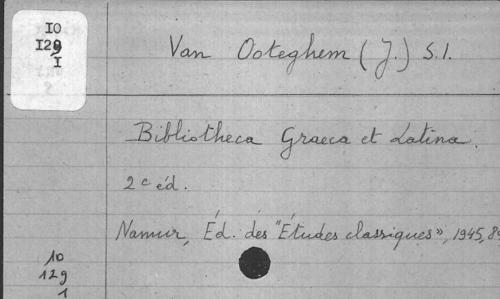 10
129
1
Van Ooteghem (J.) S.I.
Bibliotheca Graeca et Latina.
2e éd.
Namur, Éd. des "Études classiques", 1945,
10
129
1